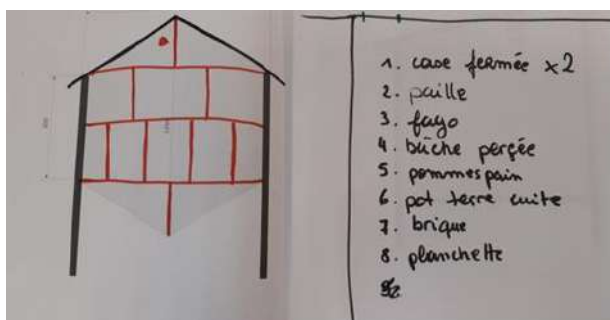 1. case fermée x2
2. paille
3. fago
4. bûche perçée
5. pommes pain
6. pot terre cuite
7. brique
8. planchette